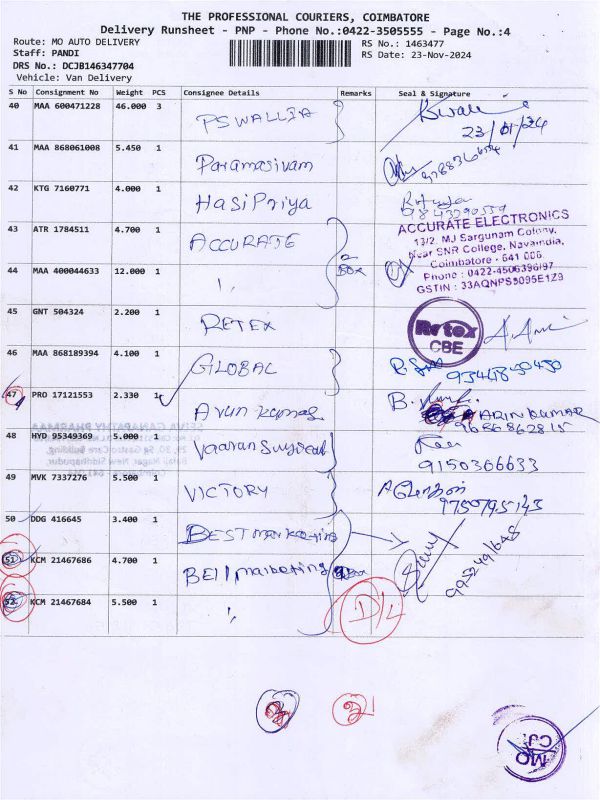 THE PROFESSIONAL COURIERS, COIMBATORE
Delivery Runsheet - PNP - Phone No.:0422-3505555 - Page No.:4
Route: MO AUTO DELIVERY
RS No.: 1463477
Staff: PANDI
RS Date: 23-Nov-2024
DRS No.: DCJB146347704
Vehicle: Van Delivery
S No Consignment No Weight PCS Consignee Details Remarks Seal & Signature
40 MAA 600471228 46.000 3 PSWALLIA
23/11/24
41 MAA 868061008 5.450 1 Paramasivam
42 KTG 7160771 4.000 1 HasiPriya
43 ATR 1784511 4.700 1 ACCURATE
ACCURATE ELECTRONICS
13/2, MJ Sargunam Colony,
Near SNR College, Navaindia,
Coimbatore - 641 006.
Phone : 0422-4506396/97
GSTIN : 33AQNPS9095E1Z9
44 MAA 400044633 12.000 1 "
2 Box
45 GNT 504324 2.200 1 RETEX
Retex
CBE
46 MAA 868189394 4.100 1 GLOBAL
47 PRO 17121553 2.330 1 Arun Kumar
ARUN KUMAR
9688862815
48 HYD 95349369 5.000 1
9150366633
49 MVK 7337276 5.500 1 VICTORY
9750795143
50 DDG 416645 3.400 1 BEST marketing
51 KCM 21467686 4.700 1 BEll marketing
Box
52 KCM 21467684 5.500 1 "
D/L
MO